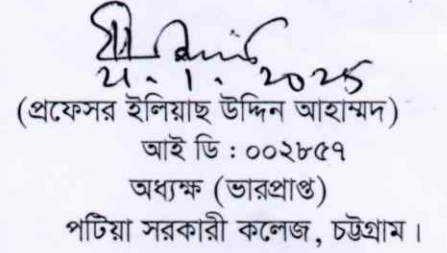 (প্রফেসর ইলিয়াছ উদ্দিন আহাম্মদ)
আই ডি : ০০২৮৫৭
অধ্যক্ষ (ভারপ্রাপ্ত)
পটিয়া সরকারী কলেজ, চট্টগ্রাম।